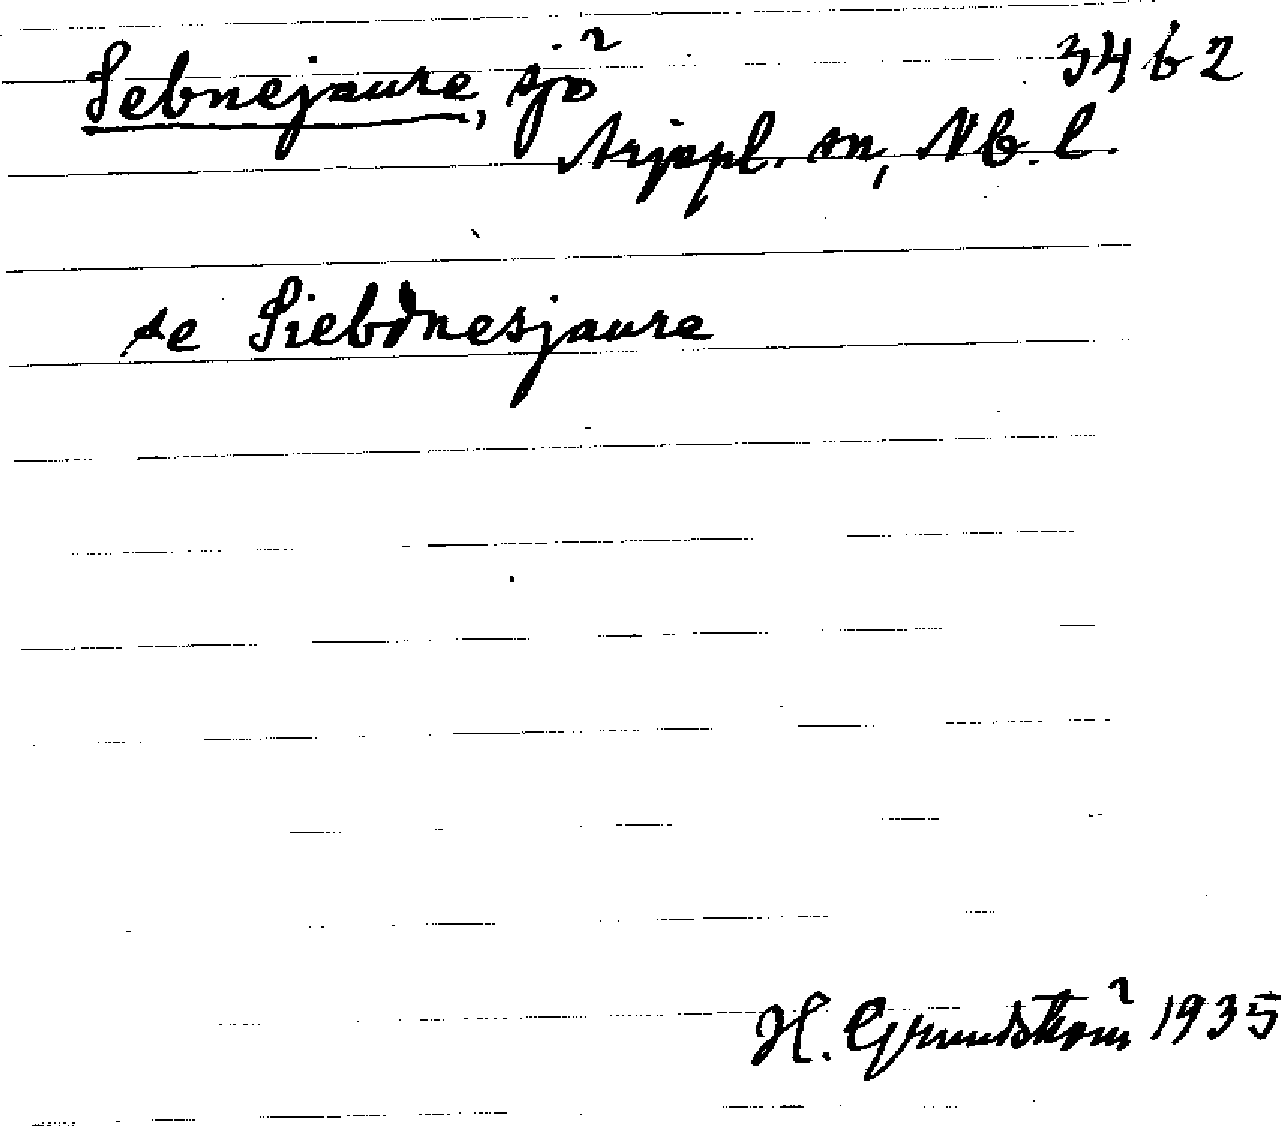 Sebnejaure, sjö 3462
Arjepl. sn, Nb. l.
se Siebdnesjaure
H. Grundström 1935